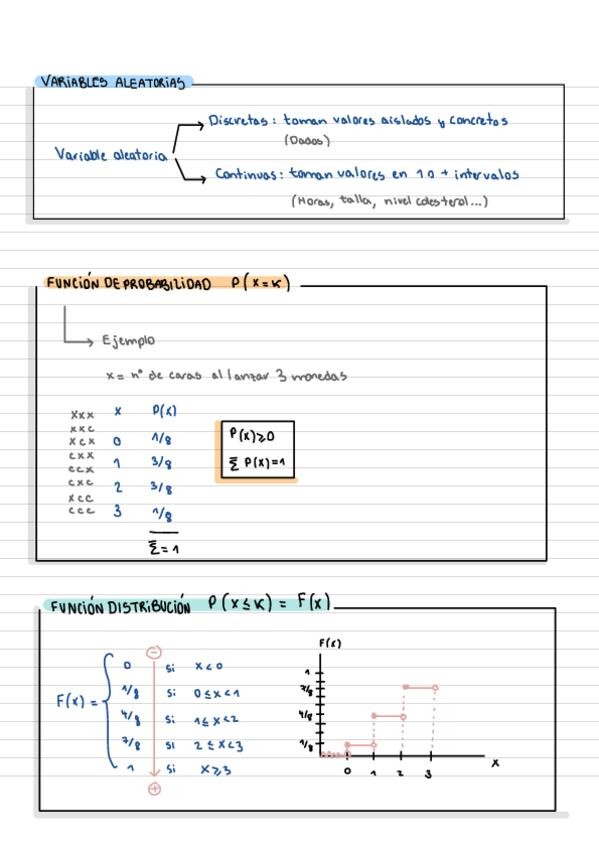 VARIABLES ALEATORIAS
Discretas: toman valores aislados y concretos
(Dados)
Variable aleatoria
Continuas: toman valores en 1 o + intervalos
(Horas, talla, nivel colesterol...)
FUNCIÓN DE PROBABILIDAD P(X=K)
Ejemplo
x = nº de caras al lanzar 3 monedas
xxx x P(x)
xxc
xcx 0 1/8
cxx
ccx 1 3/8
cxc 2 3/8
xcc
ccc 3 1/8
Σ = 1
P(x)≥0
Σ P(x)=1
FUNCIÓN DISTRIBUCIÓN P(x≤K) = F(x)
F(x) =
0 si x<0
1/8 si 0≤x<1
4/8 si 1≤x<2
7/8 si 2≤x<3
1 si x≥3
F(x)
1
7/8
4/8
1/8
0 1 2 3 x